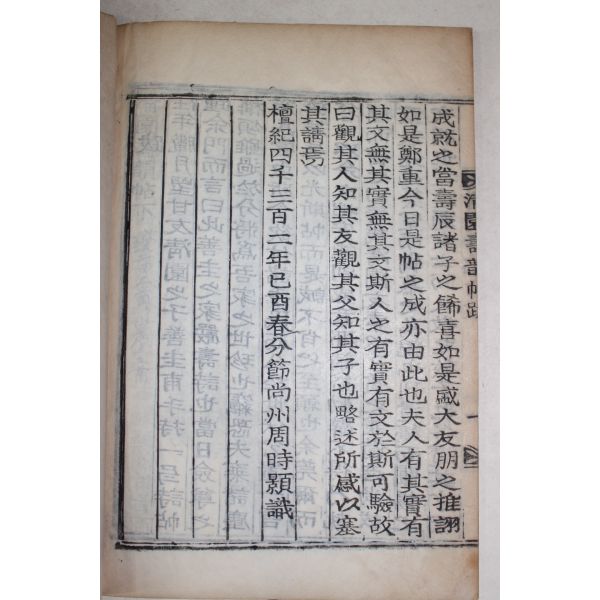 清園壽韻帖跋
一
成就之當壽辰諸子之餙喜如是戚大友朋之推詡
如是鄭重今日是帖之成亦由此也夫人有其實有
其文無其實無其文斯人之有實有文於斯可驗故
曰觀其人知其友觀其父知其子也略述所感以塞
其請焉
檀紀四千三百二年己酉春分節尚州周時顯識